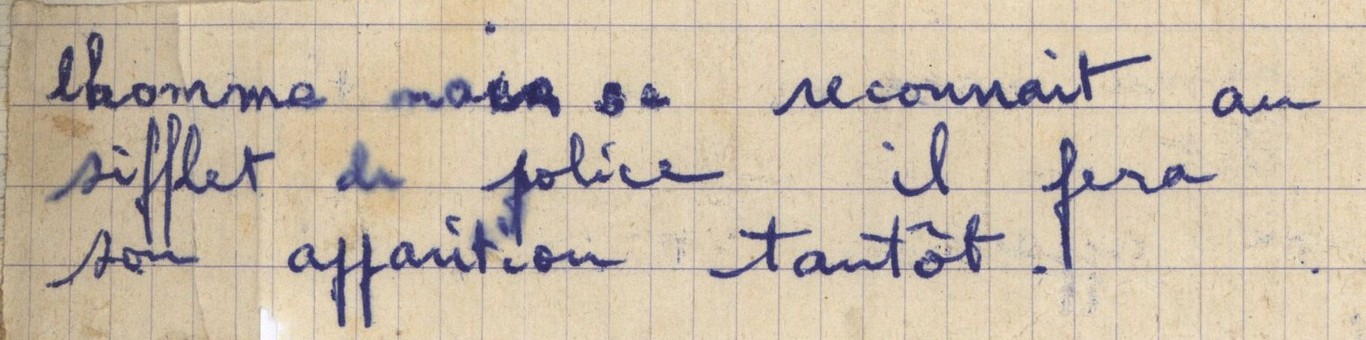 lhomme mais se reconnait au
sifflet de police il fera
son apparition tantôt.